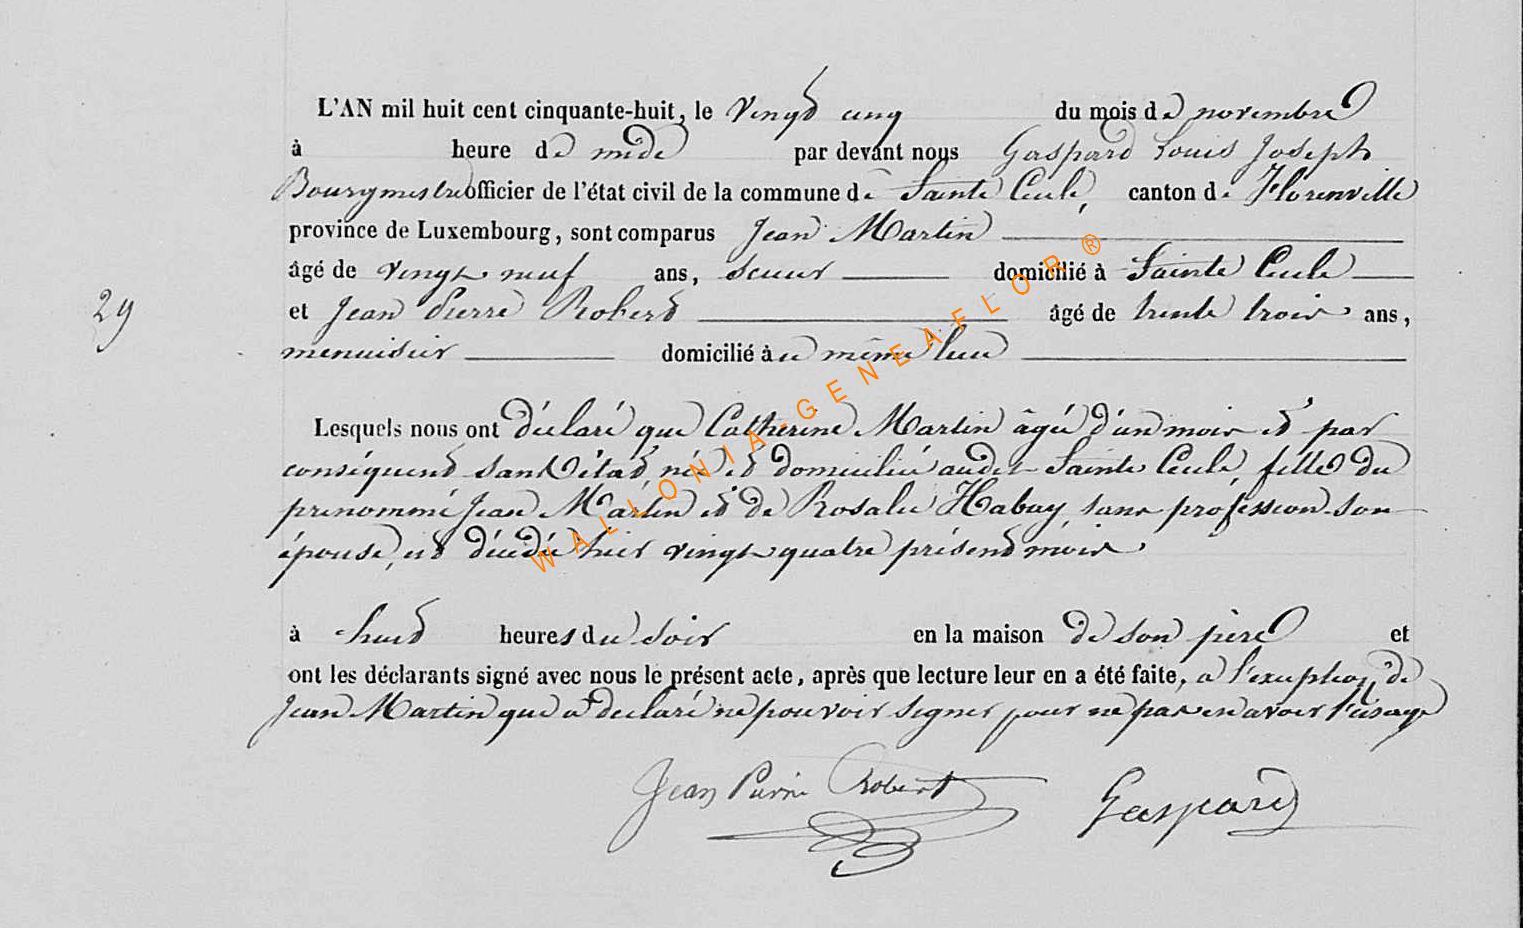 L'AN mil huit cent cinquante-huit, le vingt cinq du mois de novembre
à heure de midi par devant nous Gaspard Louis Joseph
Bourgmestre officier de l'état civil de la commune de Sainte Cécile, canton de Florenville
province de Luxembourg, sont comparus Jean Martin
âgé de vingt neuf ans, scieur domicilié à Sainte Cécile
29
et Jean Pierre Robert âgé de trente trois ans,
menuisier domicilié à u même lieu
Lesquels nous ont déclaré que Catherine Martin âgée d'un mois et par
conséquent sans état, née et domiciliée audit Sainte Cécile, fille du
prénommé Jean Martin et de Rosalie Habay, sans profession son
épouse, est décédée hier vingt quatre présent mois
à huit heures du soir en la maison de son père et
ont les déclarants signé avec nous le présent acte, après que lecture leur en a été faite, a l'exception de
Jean Martin que a déclaré ne pouvoir signer pour ne pas en avoir l'usage
Jean Pierre Robert Gaspard
WALLONIA-GENEAFLOR®